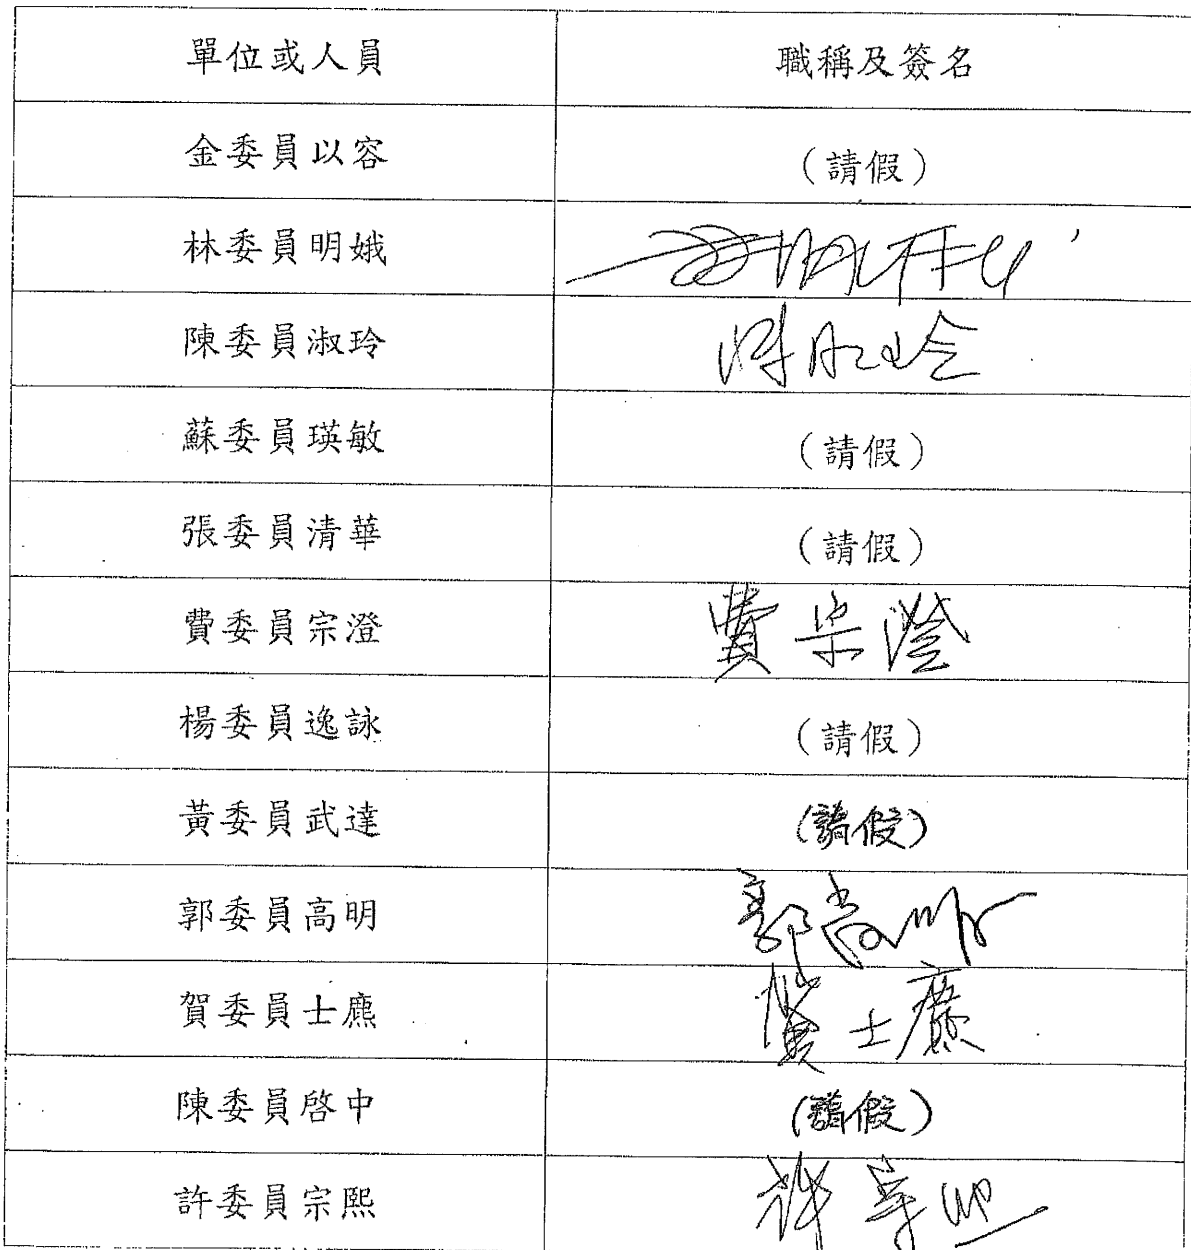 單位或人員 職稱及簽名
金委員以容 （請假）
林委員明娥 林明娥
陳委員淑玲 陳淑玲
蘇委員瑛敏 （請假）
張委員清華 （請假）
費委員宗澄 費宗澄
楊委員逸詠 （請假）
黃委員武達 (請假)
郭委員高明 郭高明
賀委員士麃 賀士麃
陳委員啓中 (請假)
許委員宗熙 許宗熙